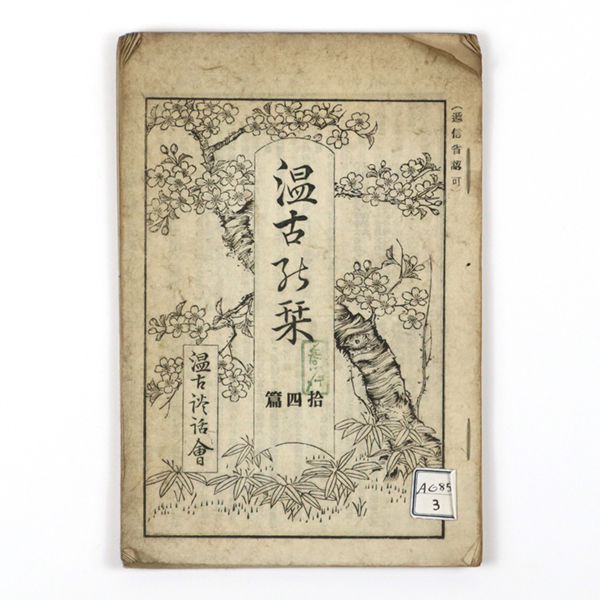 (遞信省認可)
温古能栞
拾四篇
温古談話會
A685
3